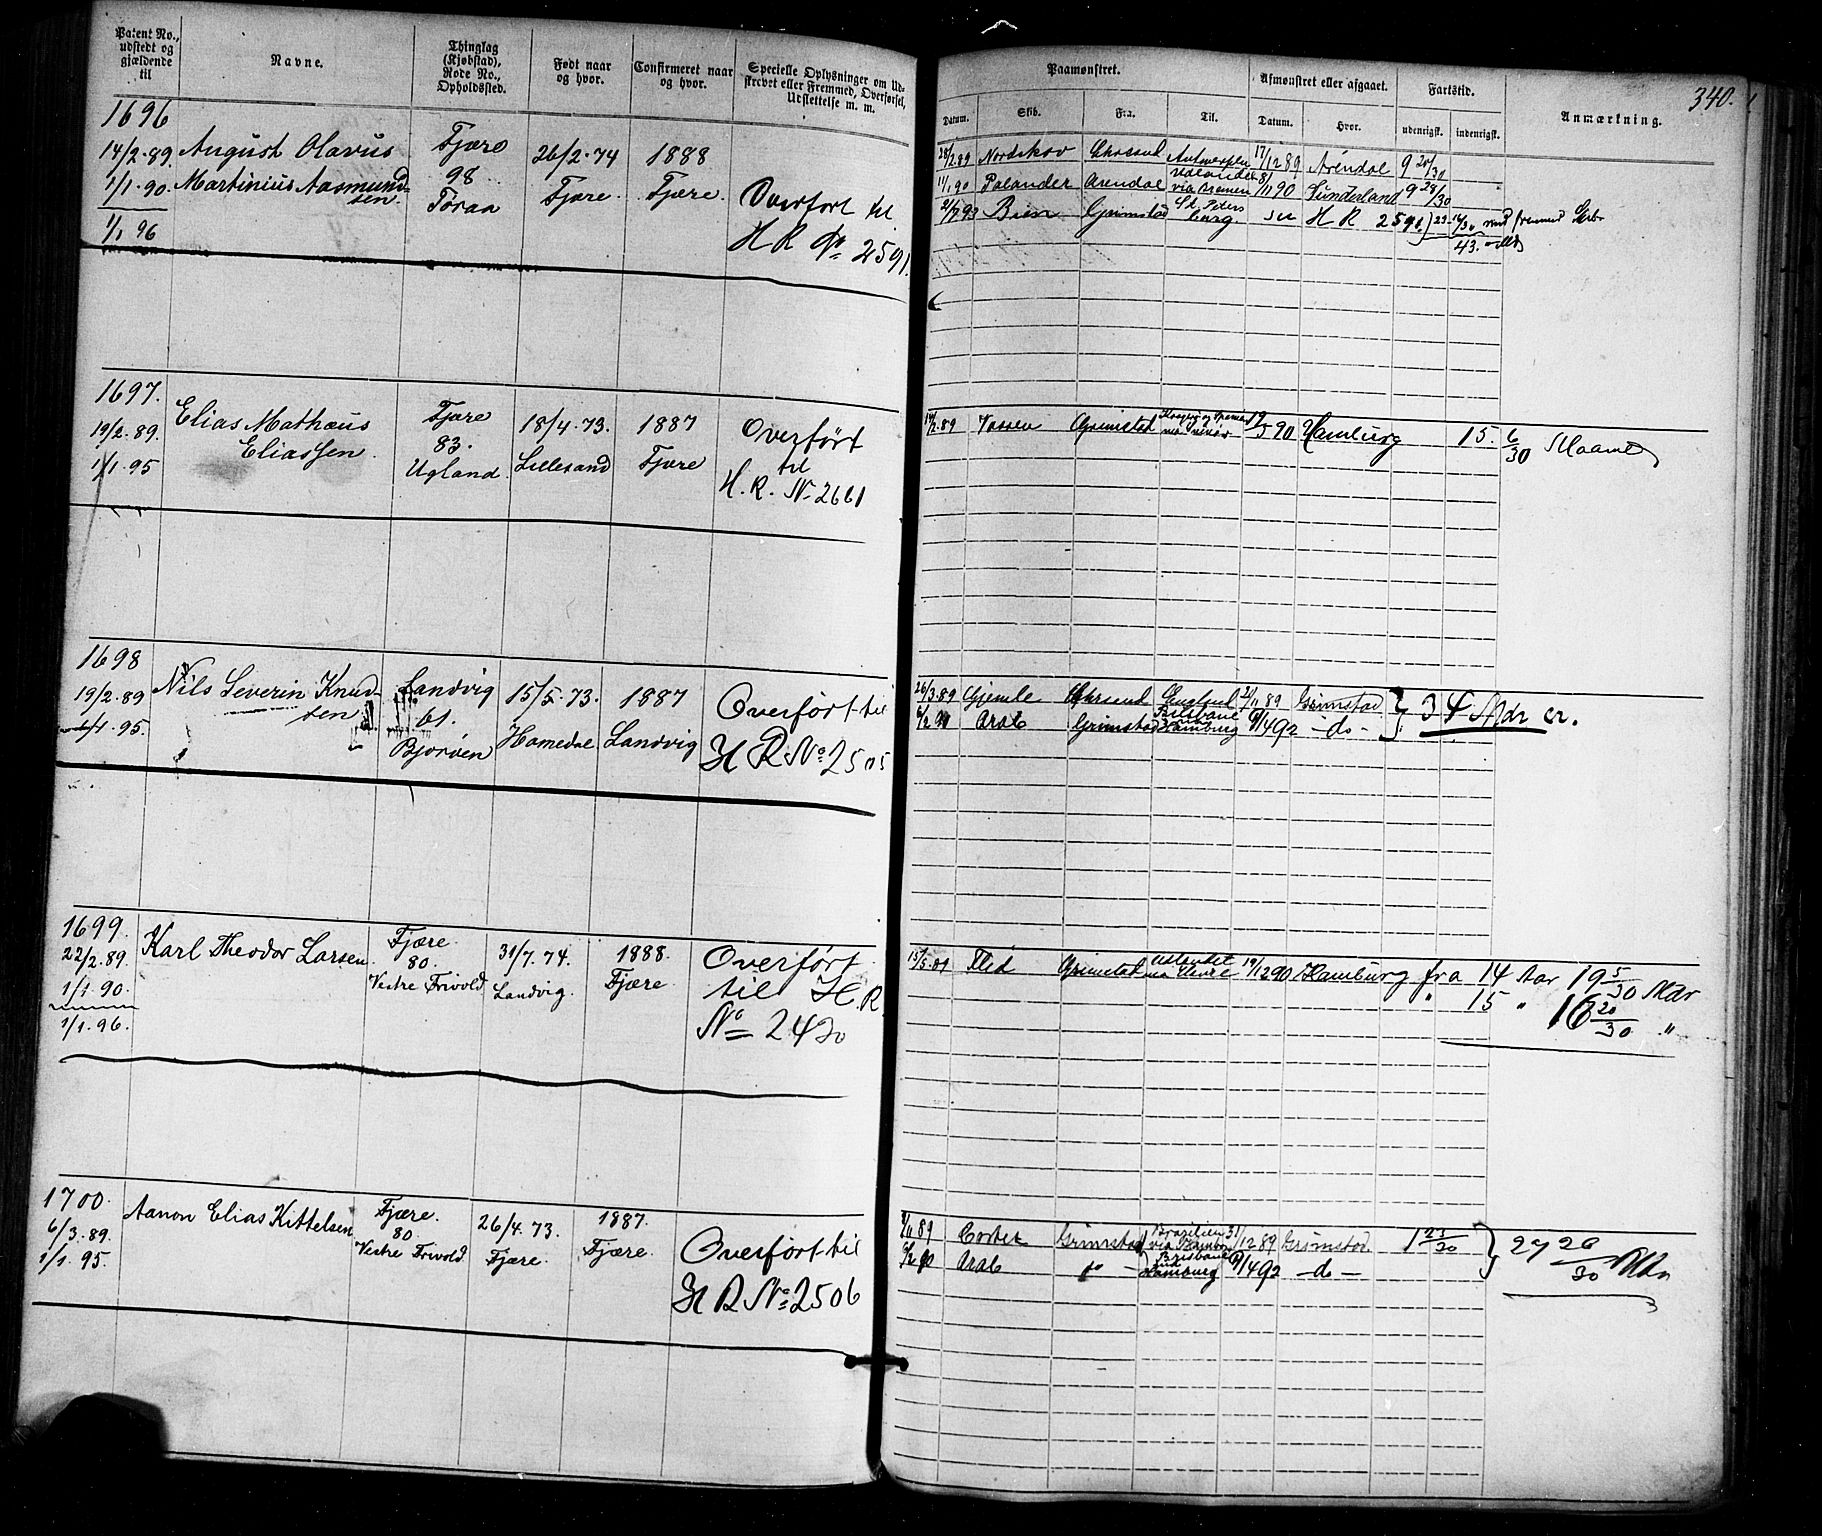 Patent No., udstedt og gjældende til
Navne.
Thinglag (Kjøbstad), Rode No., Opholdssted.
Født naar og hvor.
Confirmeret naar og hvor.
Specielle Oplysninger om Udskrevet eller Fremmed, Overførsel, Udslettelse m. m.
Paamønstret.
Afmønstret eller afgaaet.
Fartstid.
340.
Datum.
Skib.
Fra.
Til.
Datum.
Hvor.
udenrigsk.
indenrigsk.
Anmærkning.
1696
14/2.89.
1/1.90.
1/1 96
August Olavus
Martinius Aasmund-
sen.
Fjære
98
Toraa
26/2.74
Fjære.
1888
Fjære.
Overført til
H R No 2591.
28/2.89 Nordskov Chrsand Antwerpen 17/12 89 Arendal 9 20/30
11/1 90 Palander Arendal via Bremen 8/11 90 Sunderland 9 28/30
21/7.93 Bien Grimstad St. Peters
burg se H R 2591
43.
1697.
19/2.89.
1/1.95
Elias Mathæus
Eliassen.
Fjære
83.
Ugland.
18/4.73.
Lillesand
1887
Fjære
Overført
til
H. R. No 2661
14/2.89 Grimstad 19/5 90 Hamburg 15. 6/30 Maaned
1698
19/2.89
1/1.95.
Nils Severin Knud-
sen
Landvig
61.
Bjorven
15/5.73.
Homedal
1887
Landvig
Overført til
H R No 2505
26/3.89 Gjemle Chrsand England 21/11 89 Grimstad
Arab Grimstad Brisbane
Hamburg 8/4 92 - do -
34 Mdr cr.
1699.
22/2.89.
1/1.90.
1/1.96.
Karl Theodor Larsen
Fjære.
80.
Vestre Frivold.
31/7.74.
Landvig.
1888.
Fjære.
Overført
til H. R.
No 2420
15/5.89 Grimstad 19/12 90 Hamburg fra 14 Aar 19 5/30 Mdr
" 15 " 16 20/30 "
1700.
6/3.89.
1/1.95.
Aanon Elias Kittelsen
Fjære.
80.
Vestre Frivold.
26/4.73.
Fjære.
1887.
Fjære.
Overført til
H R No 2506
Cortes Grimstad Brasilien
via Hambg 31/12 89 Grimstad 1 27/30
Arab do - Brisbane
Hamburg 8/4 92 - do -
27 26/30 Mdr